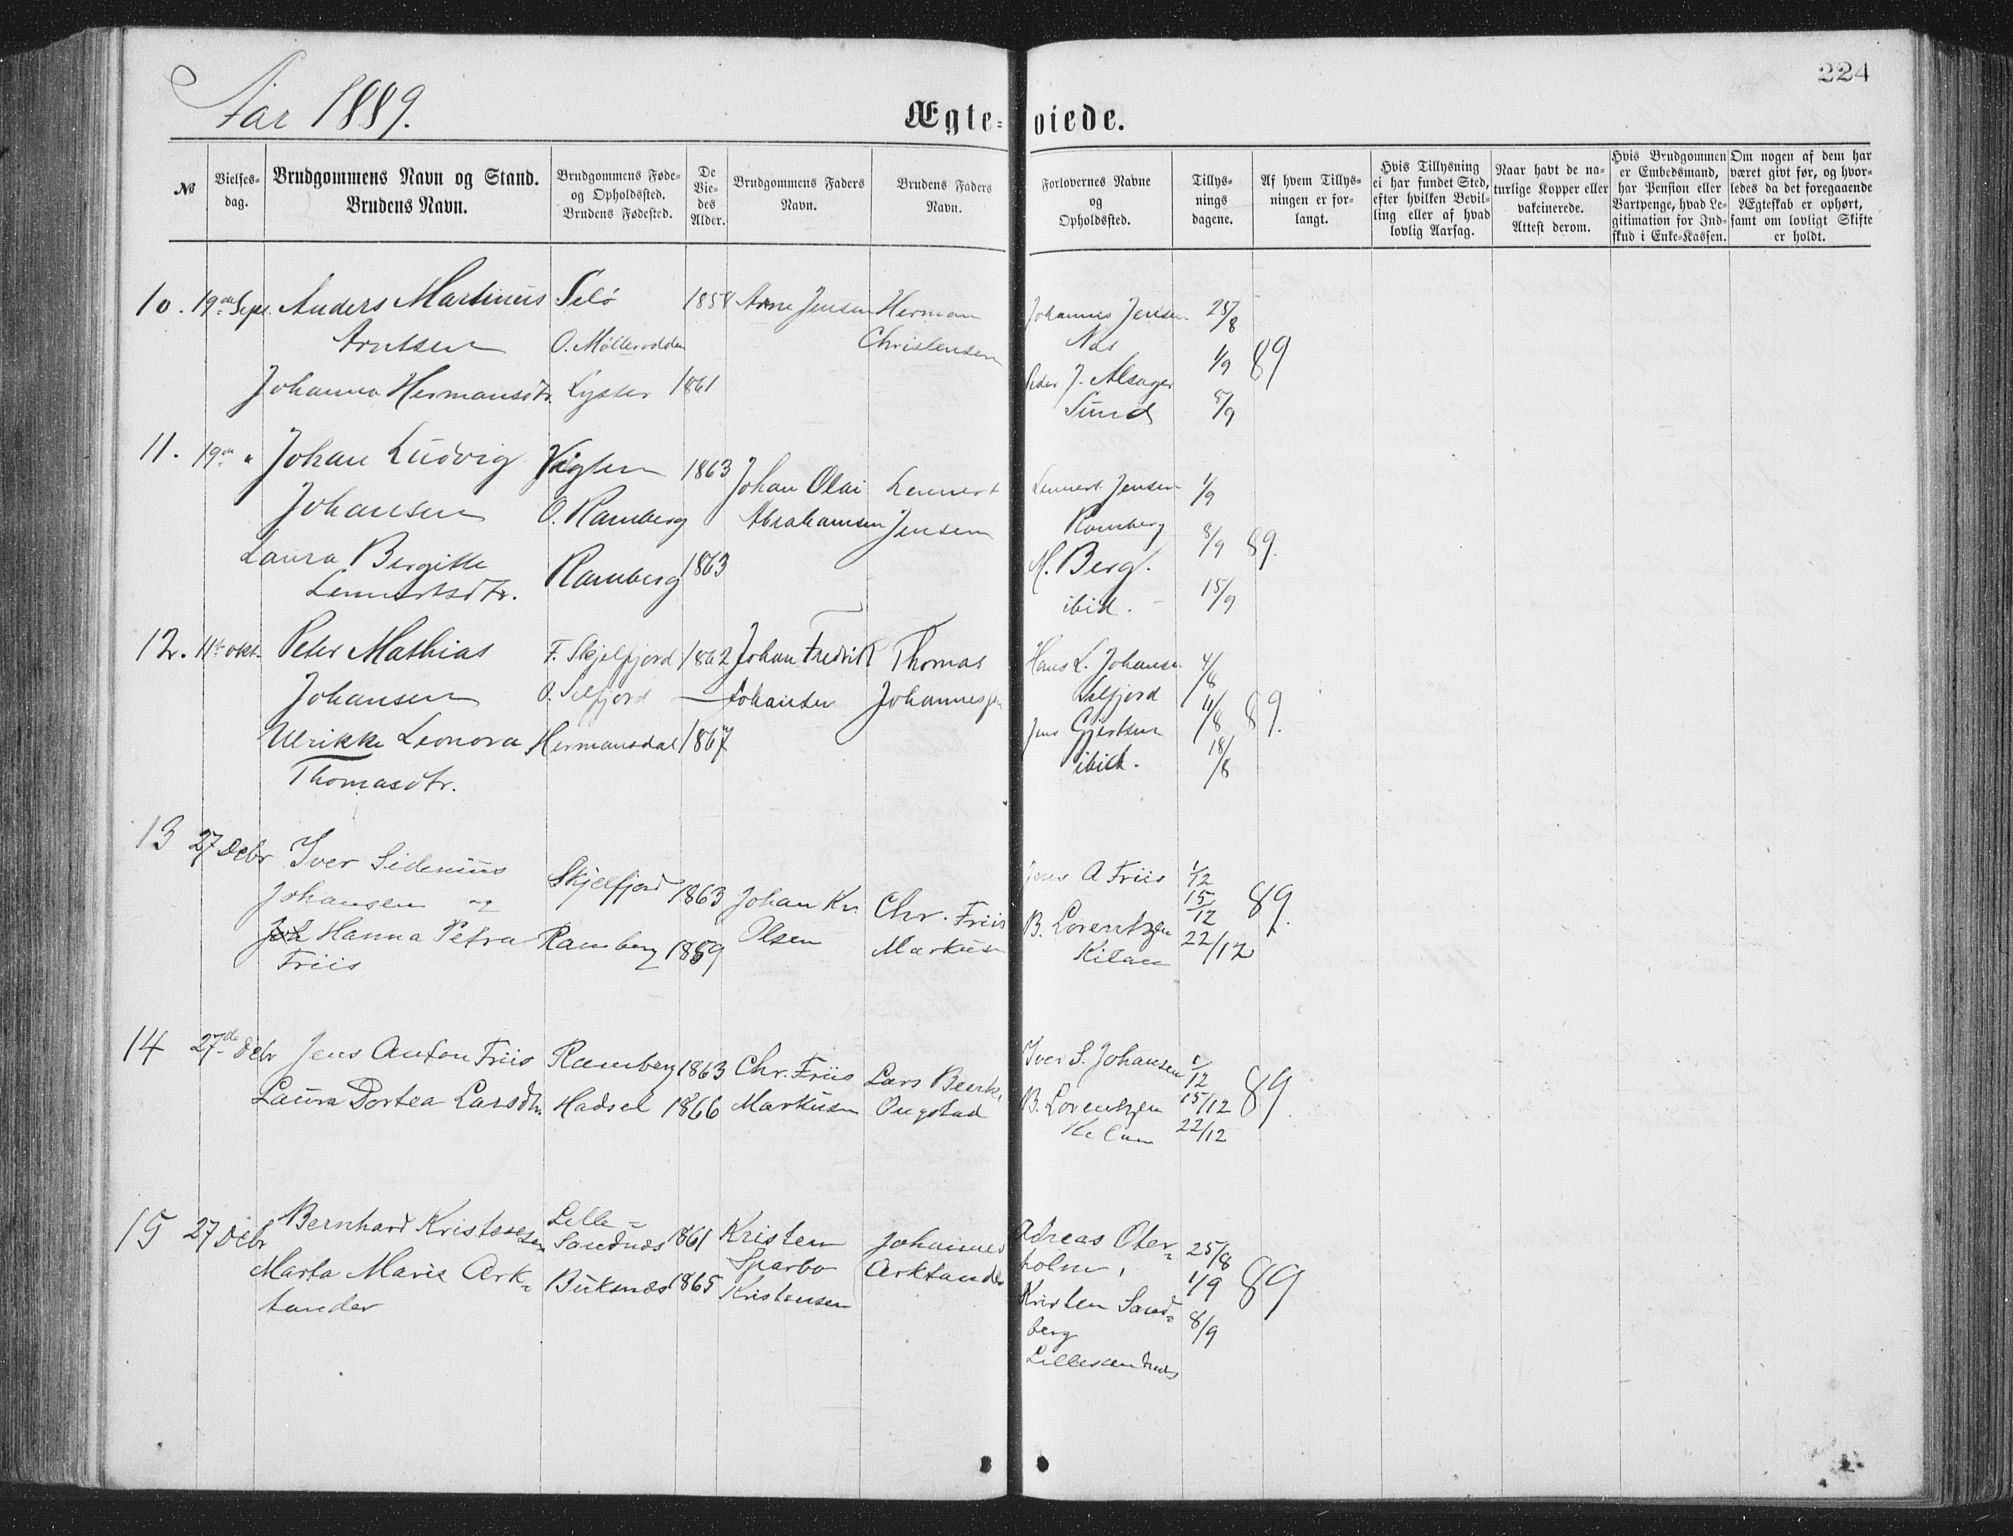 Aar 1889.
Ægte-viede.
224
№
Vielses-dag.
Brudgommens Navn og Stand.
Brudens Navn.
Brudgommens Føde-
og Opholdssted.
Brudens Fødested.
De Vie-des Alder.
Brudgommens Faders
Navn.
Brudens Faders
Navn.
Forlovernes Navne
og
Opholdssted.
Tillys-
nings
dagene.
Af hvem Tillys-
ningen er for-
langt.
Hvis Tillysning
ei har fundet Sted,
efter hvilken Bevil-
ling eller af hvad
lovlig Aarsag.
Naar havt de na-
turlige Kopper eller
vakcinerede.
Attest derom.
Hvis Brudgommen
er Embedsmand,
har Pension eller
Vartpenge, hvad Le-
gitimation for Ind-
skud i Enke-Kassen.
Om nogen af dem har
været givt før, og hvor-
ledes da det foregaaende
Ægteskab er ophørt,
samt om lovligt Skifte
er holdt.
10. 19de Sept. Anders Martinus Selö 1858 Arne Jensen Herman Johannes Jensen 25/8
Arntsen O. Möllerodden Christensen Næs 1/9 89
Johanna Hermansdtr. Lyster 1861 Peder J. Alsager
Sund 8/9
11. 19de " Johan Ludvig Vigten 1863 Johan Olai Lennert Lennert Jensen 1/9
Johansen O. Ramberg Abrahamsen Jensen Ramberg 8/9 89.
Laura Bergitte Ramberg 1863 M. Berg.
Lennertsdtr. ibid. 15/9
12. 11te okt. Peter Mathias F. Skjelfjord 1862 Johan Fredrik Thomas Hans L. Johansen 4/8
Johansen O. Selfjord Johansen Johannesen Selfjord 11/8 89.
Ulrikke Leonora Hermansdal 1867 Jens Gjertsen
Thomasdtr. ibid. 18/8
13 27 Debr Iver Sidenius
Johansen og Skjelfjord 1863 Johan Kr. Chr. Friis Jens A Friis 1/12
15/12 89.
Joh Hanna Petra Ramberg 1859 Olsen Markusen B. Lorentzen 22/12
Friis Kilan
14 27de Debr Jens Anton Friis Ramberg 1863 Chr. Friis Lars Beerts. Iver S. Johansen 1/12
Laura Dortea Larsdtr Hadsel 1866 Markusen Ougstad B. Lorentzen 15/12 89.
22/12
15 27 Debr Bernhard Kristensen Lille=
Sandnæs 1861 Kristen Johannes Adreas Oter= 25/8
Marta Marie Ark= Buksnæs 1865 Sparbo Arktander holm, 1/9 89
tander Kristensen Kristen Sand= 8/9
berg
Lillesandnæs